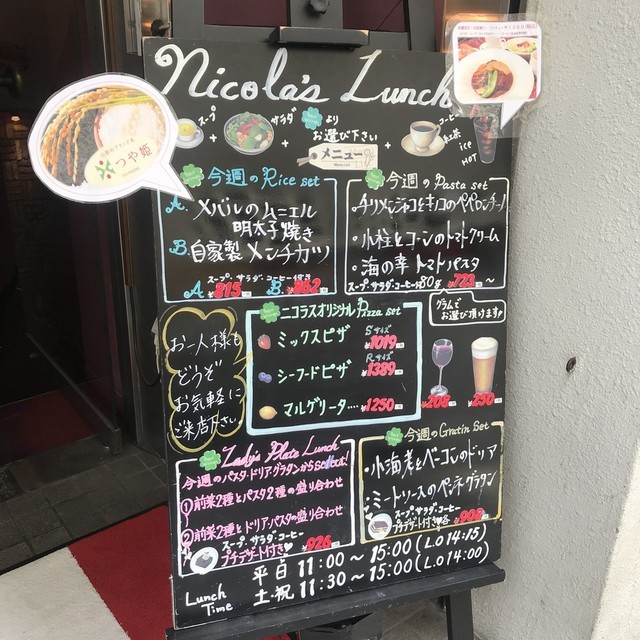 Nicola's Lunch
スープ + サラダ + より お選び下さい + コーヒー 紅茶 ICE HOT
メニュー
つや姫
今週のRice set
A. メバルのムニエル
明太子焼き
B. 自家製メンチカツ
スープ・サラダ・コーヒー付き
A. ¥815 B. ¥862
今週のPasta set
・チリメンジャコとキノコのペペロンチーノ
・小柱とコーンのトマトクリーム
・海の幸トマトパスタ
スープ・サラダ・コーヒー付 80g ¥723 ～
グラムで
お選び頂けます♪
お一人様も
どうぞ
お気軽に
ご来店下さい
ニコラスオリジナルPizza set
ミックスピザ Sサイズ ¥1019
シーフードピザ Rサイズ ¥1389
マルゲリータ.... ¥1250
¥208 ¥250
Lady's Plate Lunch
今週のパスタ・ドリア・グラタンからselect!
①前菜2種とパスタ2種の盛り合わせ
②前菜2種とドリア・パスタの盛り合わせ
スープ・サラダ・コーヒー
プチデザート付き♥ ¥926
今週のGratin Set
・小海老とベーコンのドリア
・ミートソースのペンネグラタン
スープ・サラダ・コーヒー
プチデザート付き♥各 ¥908
Lunch Time
平日 11:00～15:00 (L.O 14:15)
土祝 11:30～15:00 (L.O 14:00)